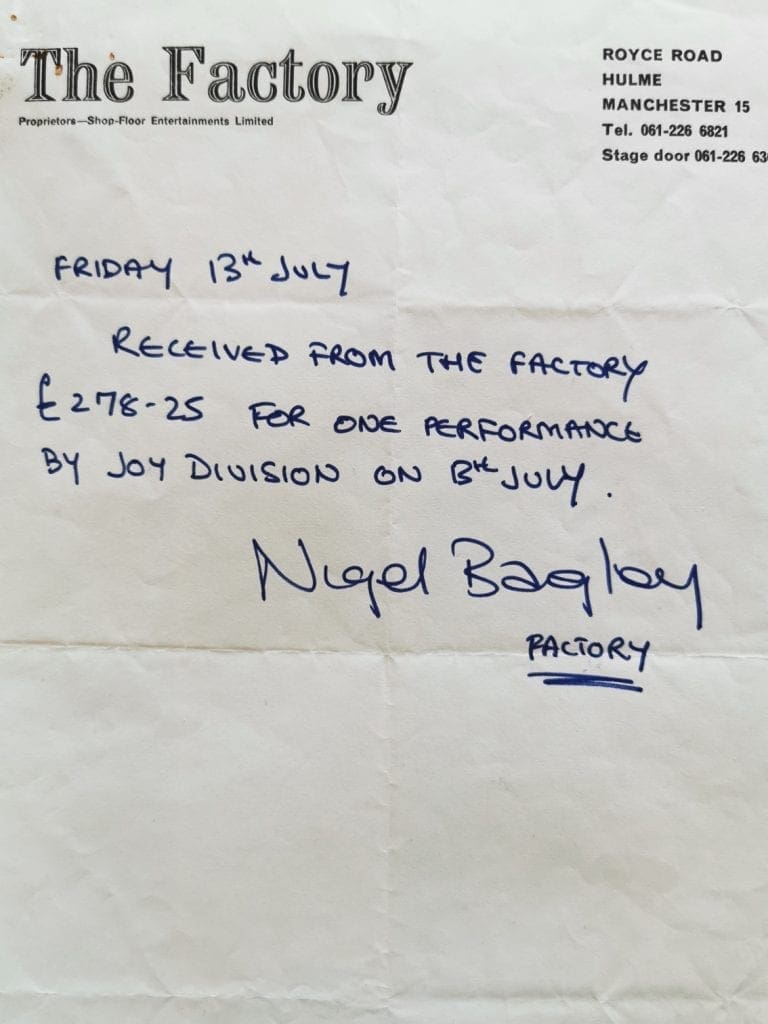 The Factory
Proprietors—Shop-Floor Entertainments Limited
ROYCE ROAD
HULME
MANCHESTER 15
Tel. 061-226 6821
Stage door 061-226 63
FRIDAY 13th JULY
RECEIVED FROM THE FACTORY
£278-25 FOR ONE PERFORMANCE
BY JOY DIVISION ON 13th JULY.
Nigel Bagley
FACTORY